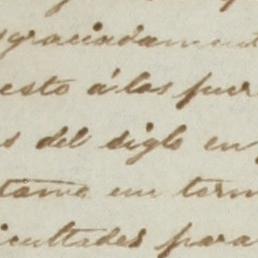 sgraciadament
esto á las fuer
s del siglo en
tamo un torn
icultades para